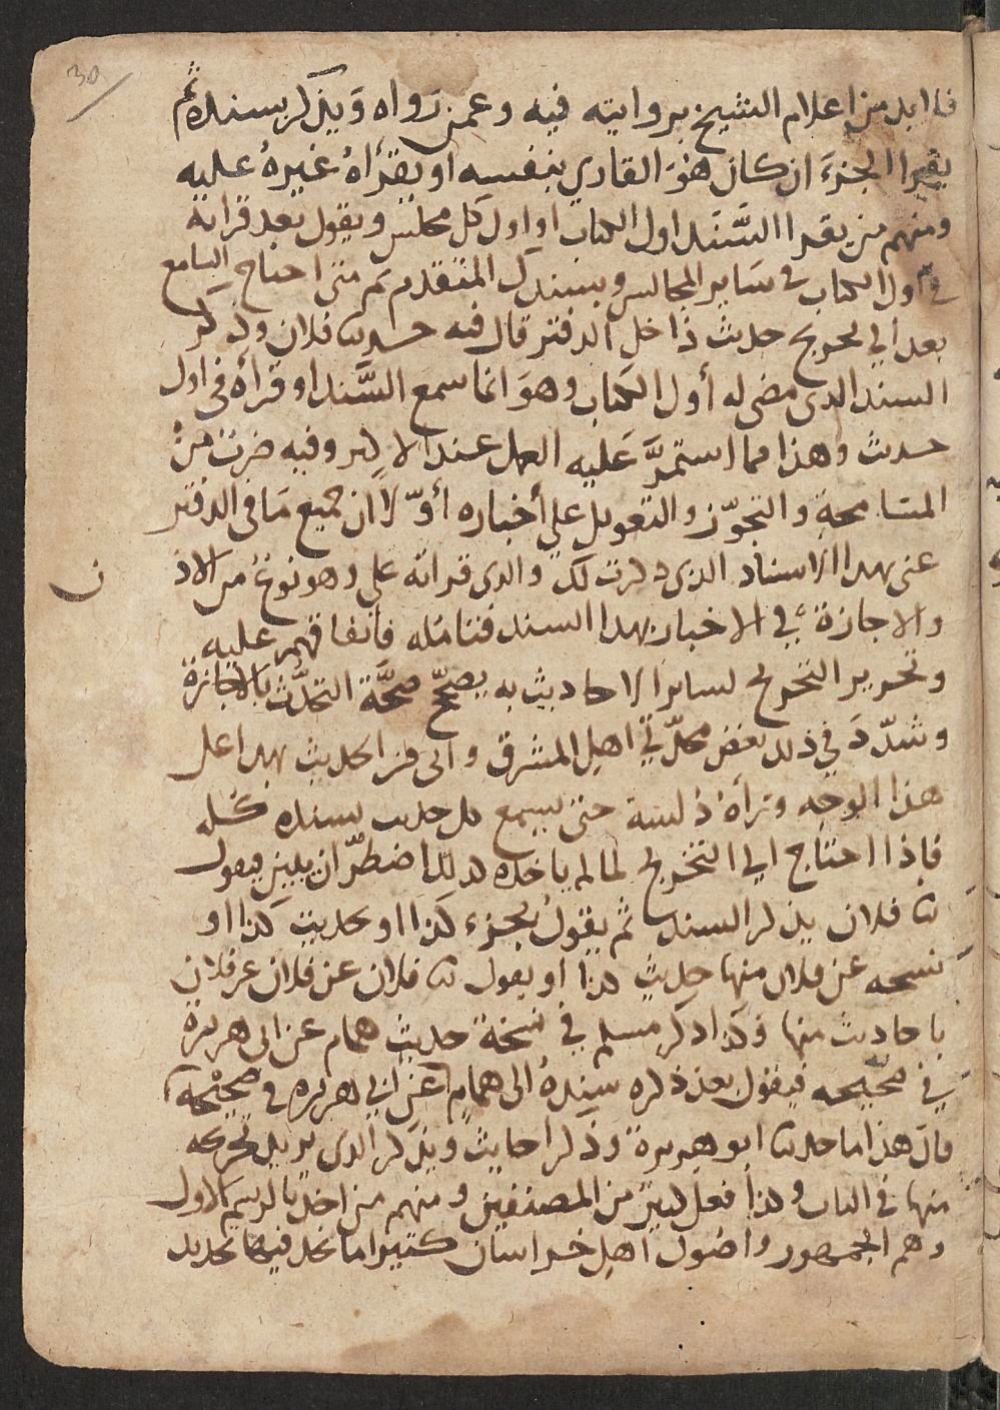 30
فلا بد من اعلام الشيخ بروايته فيه وعمن رواه ويذكر سنده ثم
يقرا الجزء ان كان هو القاري بنفسه او يقرأه غيره عليه
ومنهم من يقرا السند اول الكتاب او اول كل مجلس ويقول بعد قراة
في اول الكتاب في ساير المجالس وبسندك المتقدم ثم متى احتاج السامع
بعد الي تخريج حديث داخل الدفتر قال فيه حدثنا فلان وذكر
السند الذي مضى له أول الكتاب وهو انما سمع السند او قرأه في اول
حديث وهذا مما استمر عليه العمل عند الاكثر وفيه ضرب من
المسامحة والتجوز والتعويل علي أخباره أوّلا ان جميع ما في الدفتر
عنى بهذا الاسناد الذي ذكرت لك والذي قراته علي وهو نوع من الاذن
والاجازة في الاخبار بهذا السند فتامله فاتفاقهم عليه
وتحرير التخريج لساير الاحاديث به يصحح صحّة التحدّث بالاجازة
وشدّد في ذلك بعض محدّثي اهل المشرق وابى من الحديث بهذا على
هذا الوجه ورأه دلسة حتى يسمع كل حديث بسنده كله
فاذا احتاج الي التخريج لما لم ياخذه كذلك اضطرّ ان يبين فيقول
نا فلان يذكر السند ثم يقول بجزء كذا او حديث كذا او
نسخه عن فلان منها حديث كذا او يقول نا فلان عن فلان عن فلان
باحاديث منها وكذا ذكر مسلم في نسخة حديث همام عن ابي هريرة
في صحيحه فيقول بعد ذكره سنده الى همام عن ابي هريره في صحيحه
قال هذا ما حدثنا ابو هريرة وذكر احاديث ويذكر الذي يريد تخريجه
منها في الباب وكذا فعل كثير من المصنفين ومنهم من اخذ بالرسم الاول
وهم الجمهور واصول اهل خراسان كثيرا ما تجد فيها تجديد